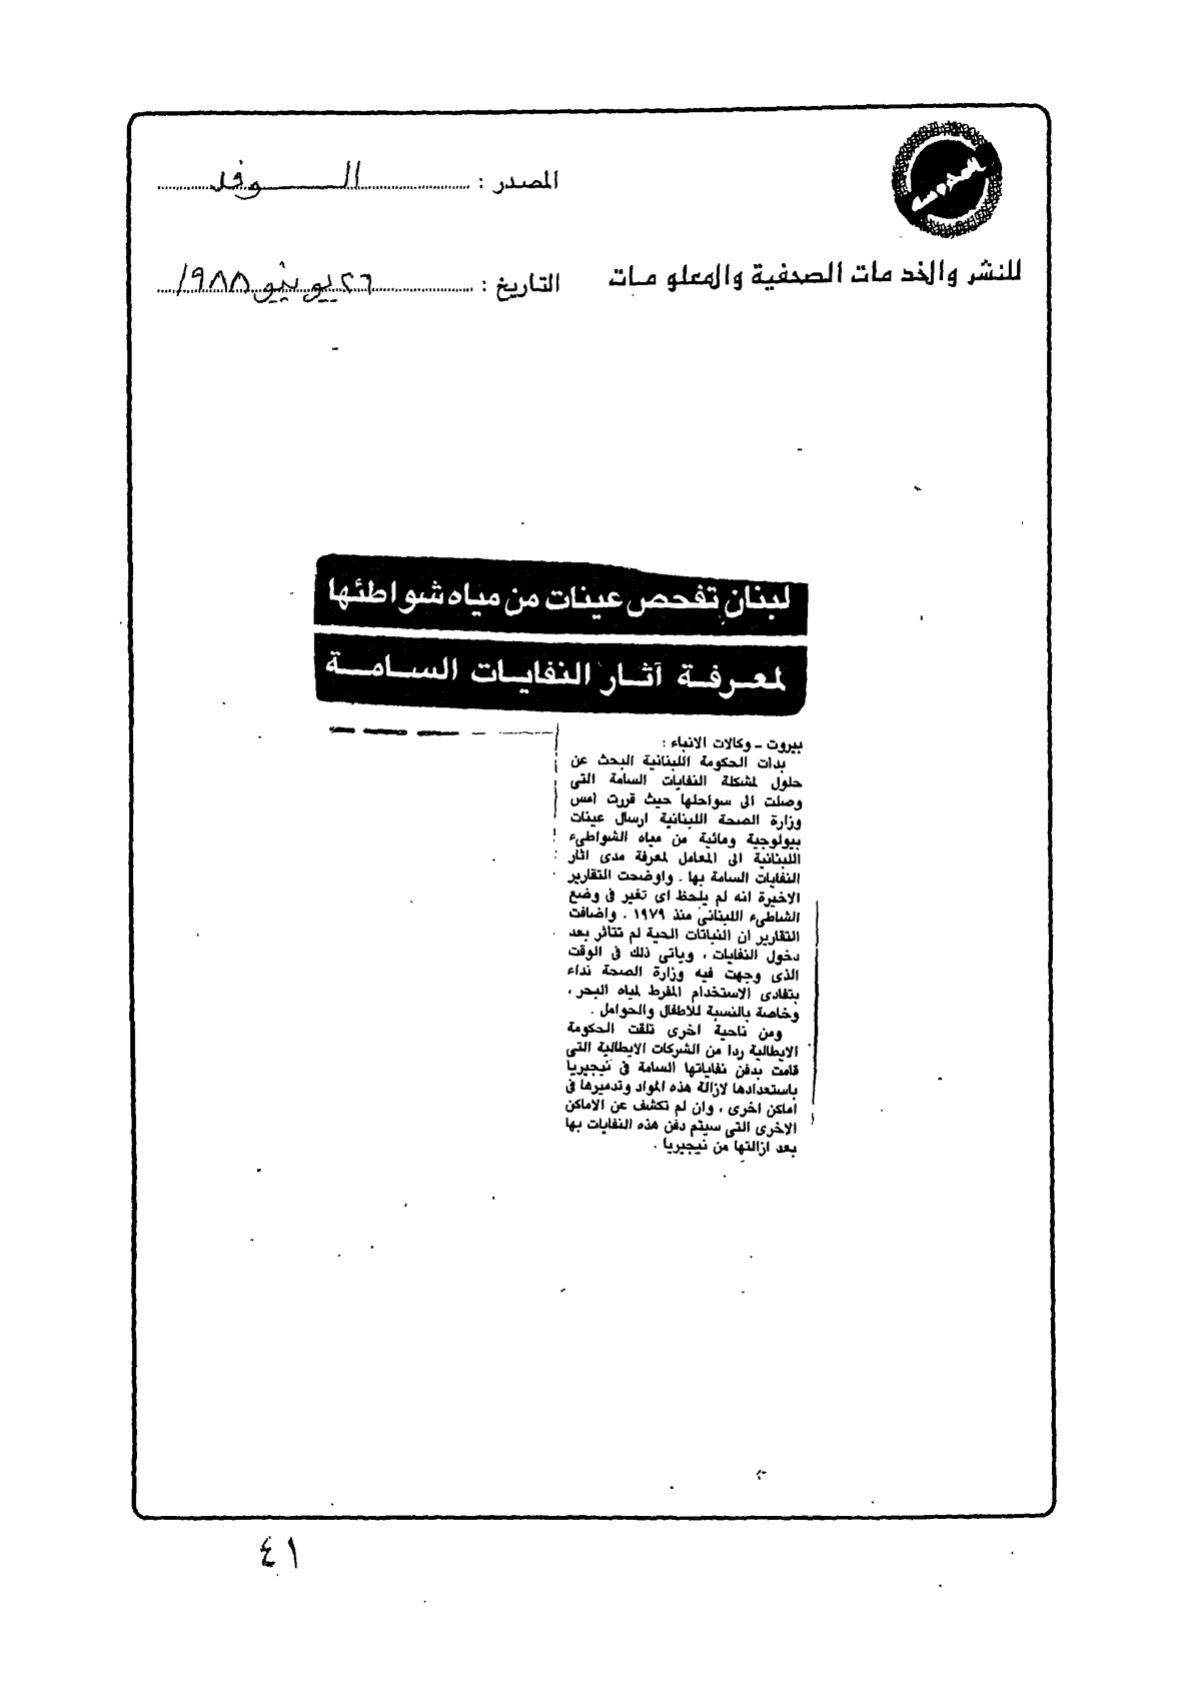 المصدر : الوفد
للنشر والخدمات الصحفية والمعلومات
التاريخ : ٢٦ يونيو ١٩٨٨
لبنان تفحص عينات من مياه شواطئها
لمعرفة آثار النفايات السامة
بيروت - وكالات الانباء :
بدات الحكومة اللبنانية البحث عن
حلول لمشكلة النفايات السامة التى
وصلت الى سواحلها حيث قررت امس
وزارة الصحة اللبنانية ارسال عينات
بيولوجية ومائية من مياه الشواطىء
اللبنانية الى المعامل لمعرفة مدى اثار
النفايات السامة بها . واوضحت التقارير
الاخيرة انه لم يلحظ اى تغير فى وضع
الشاطىء اللبنانى منذ ١٩٧٩ . واضافت
التقارير ان النباتات الحية لم تتاثر بعد
دخول النفايات ، وياتى ذلك فى الوقت
الذى وجهت فيه وزارة الصحة نداء
بتفادى الاستخدام المفرط لمياه البحر ،
وخاصة بالنسبة للاطفال والحوامل .
ومن ناحية اخرى تلقت الحكومة
الايطالية ردا من الشركات الايطالية التى
قامت بدفن نفاياتها السامة فى نيجيريا
باستعدادها لازالة هذه المواد وتدميرها فى
اماكن اخرى ، وان لم تكشف عن الاماكن
الاخرى التى سيتم دفن هذه النفايات بها
بعد ازالتها من نيجيريا .
٤١